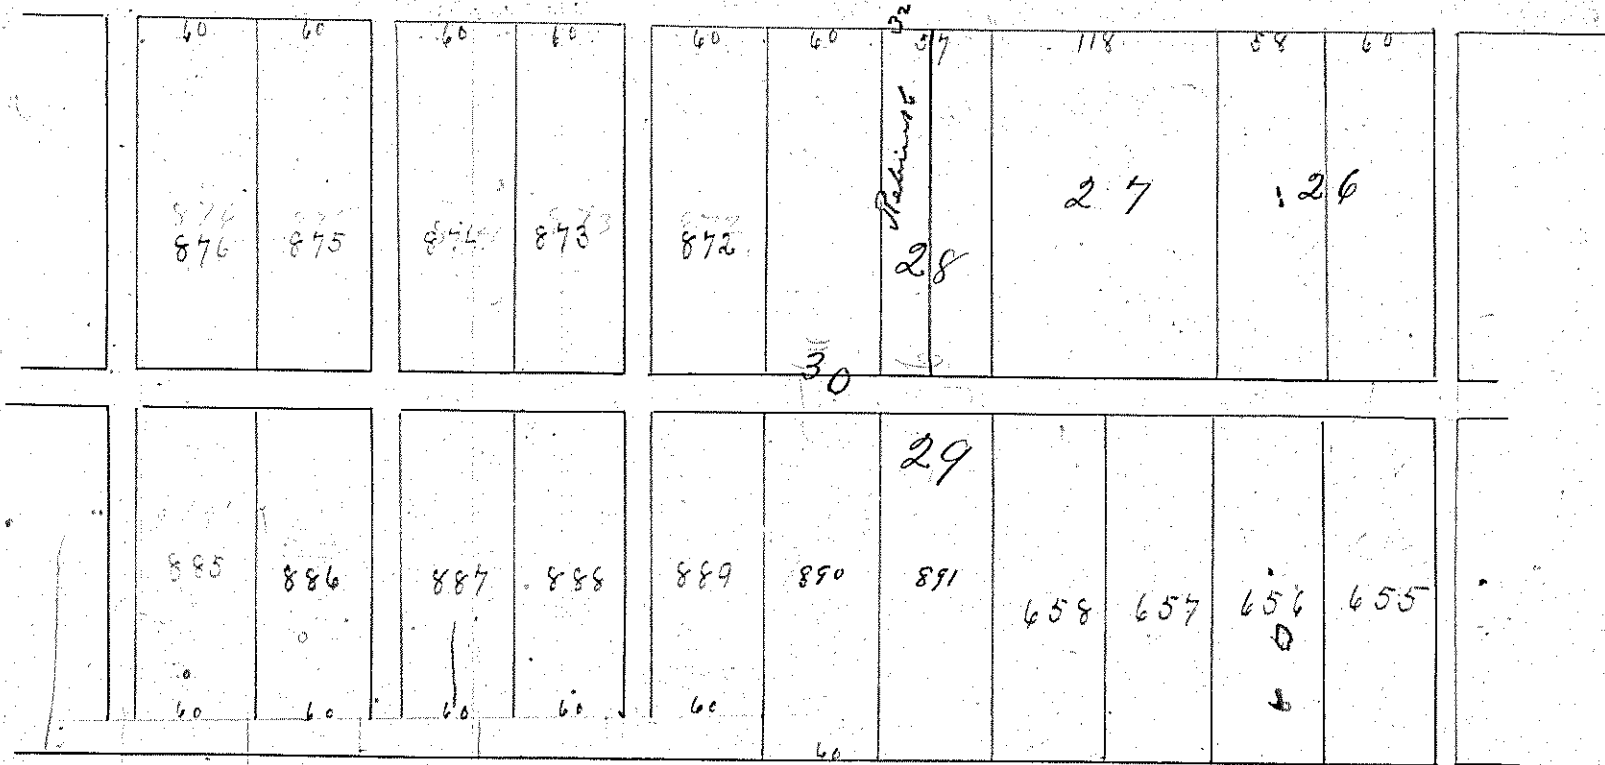 60 60 60 60 60 60 32 57 118 58 60
27 26
876 875 874 873 872 28
30
29
885 886 887 888 889 890 891
658 657 656 655
60 60 60 60 60
60